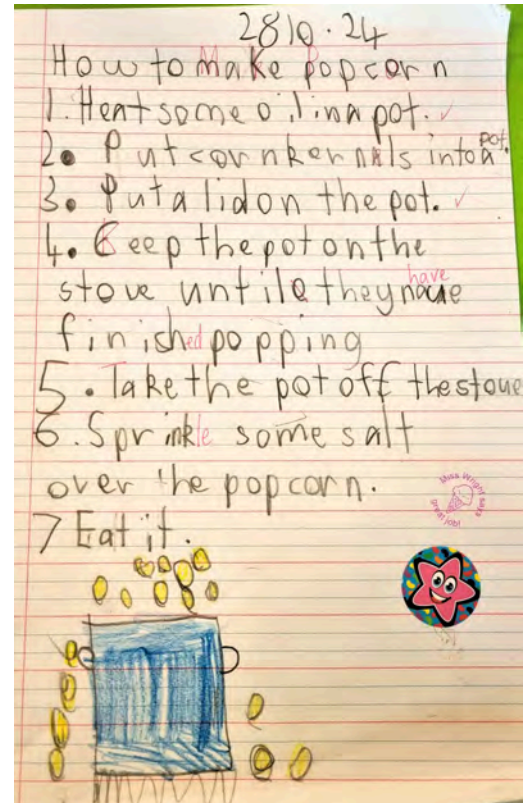 28 10. 24
How to Make Popcorn
1. Heat some oil in a pot.
2. Put corn kernals into a pot.
3. Put a lid on the pot.
4. Keep the pot on the
stove until they have
finished popping
5. Take the pot off the stove
6. Sprinkle some salt
over the popcorn.
7 Eat it.
Miss Wright says
great job!